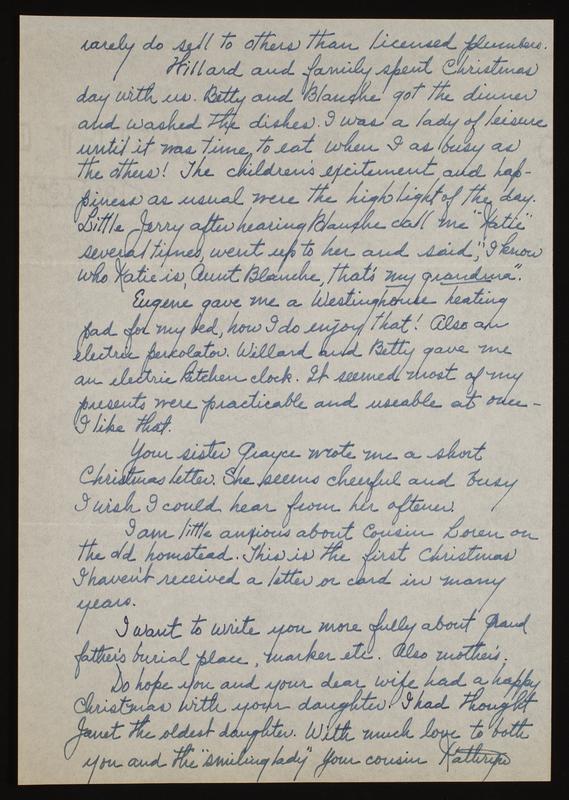 rarely do sell to others than licensed plumbers.
Willard and family spent Christmas
day with us. Betty and Blanche got the dinner
and washed the dishes. I was a lady of leisure
until it was time to eat when I as busy as
the others! The children's excitement and hap-
piness as usual were the high light of the day.
Little Jerry after hearing Blanche call me "Katie"
several times, went up to her and said, "I know
who Katie is, Aunt Blanche, that's my grandma".
Eugene gave me a Westinghouse heating
pad for my bed, how I do enjoy that! Also an
electric perkolator. Willard and Betty gave me
an electric kitchen clock. It seemed most of my
presents were practicable and useable at once -
I like that.
Your sister Grayce wrote me a short
Christmas letter. She seems cheerful and busy
I wish I could hear from her oftener.
I am little anxious about Cousin Loren on
the old homstead. This is the first Christmas
I haven't received a letter or card in many
years.
I want to write you more fully about Grand
father's burial place, marker etc. Also mother's.
Do hope you and your dear wife had a happy
Christmas with your daughter. I had thought
Janet the oldest daughter. With much love to both
you and the "smiling lady" Your cousin Kathryn